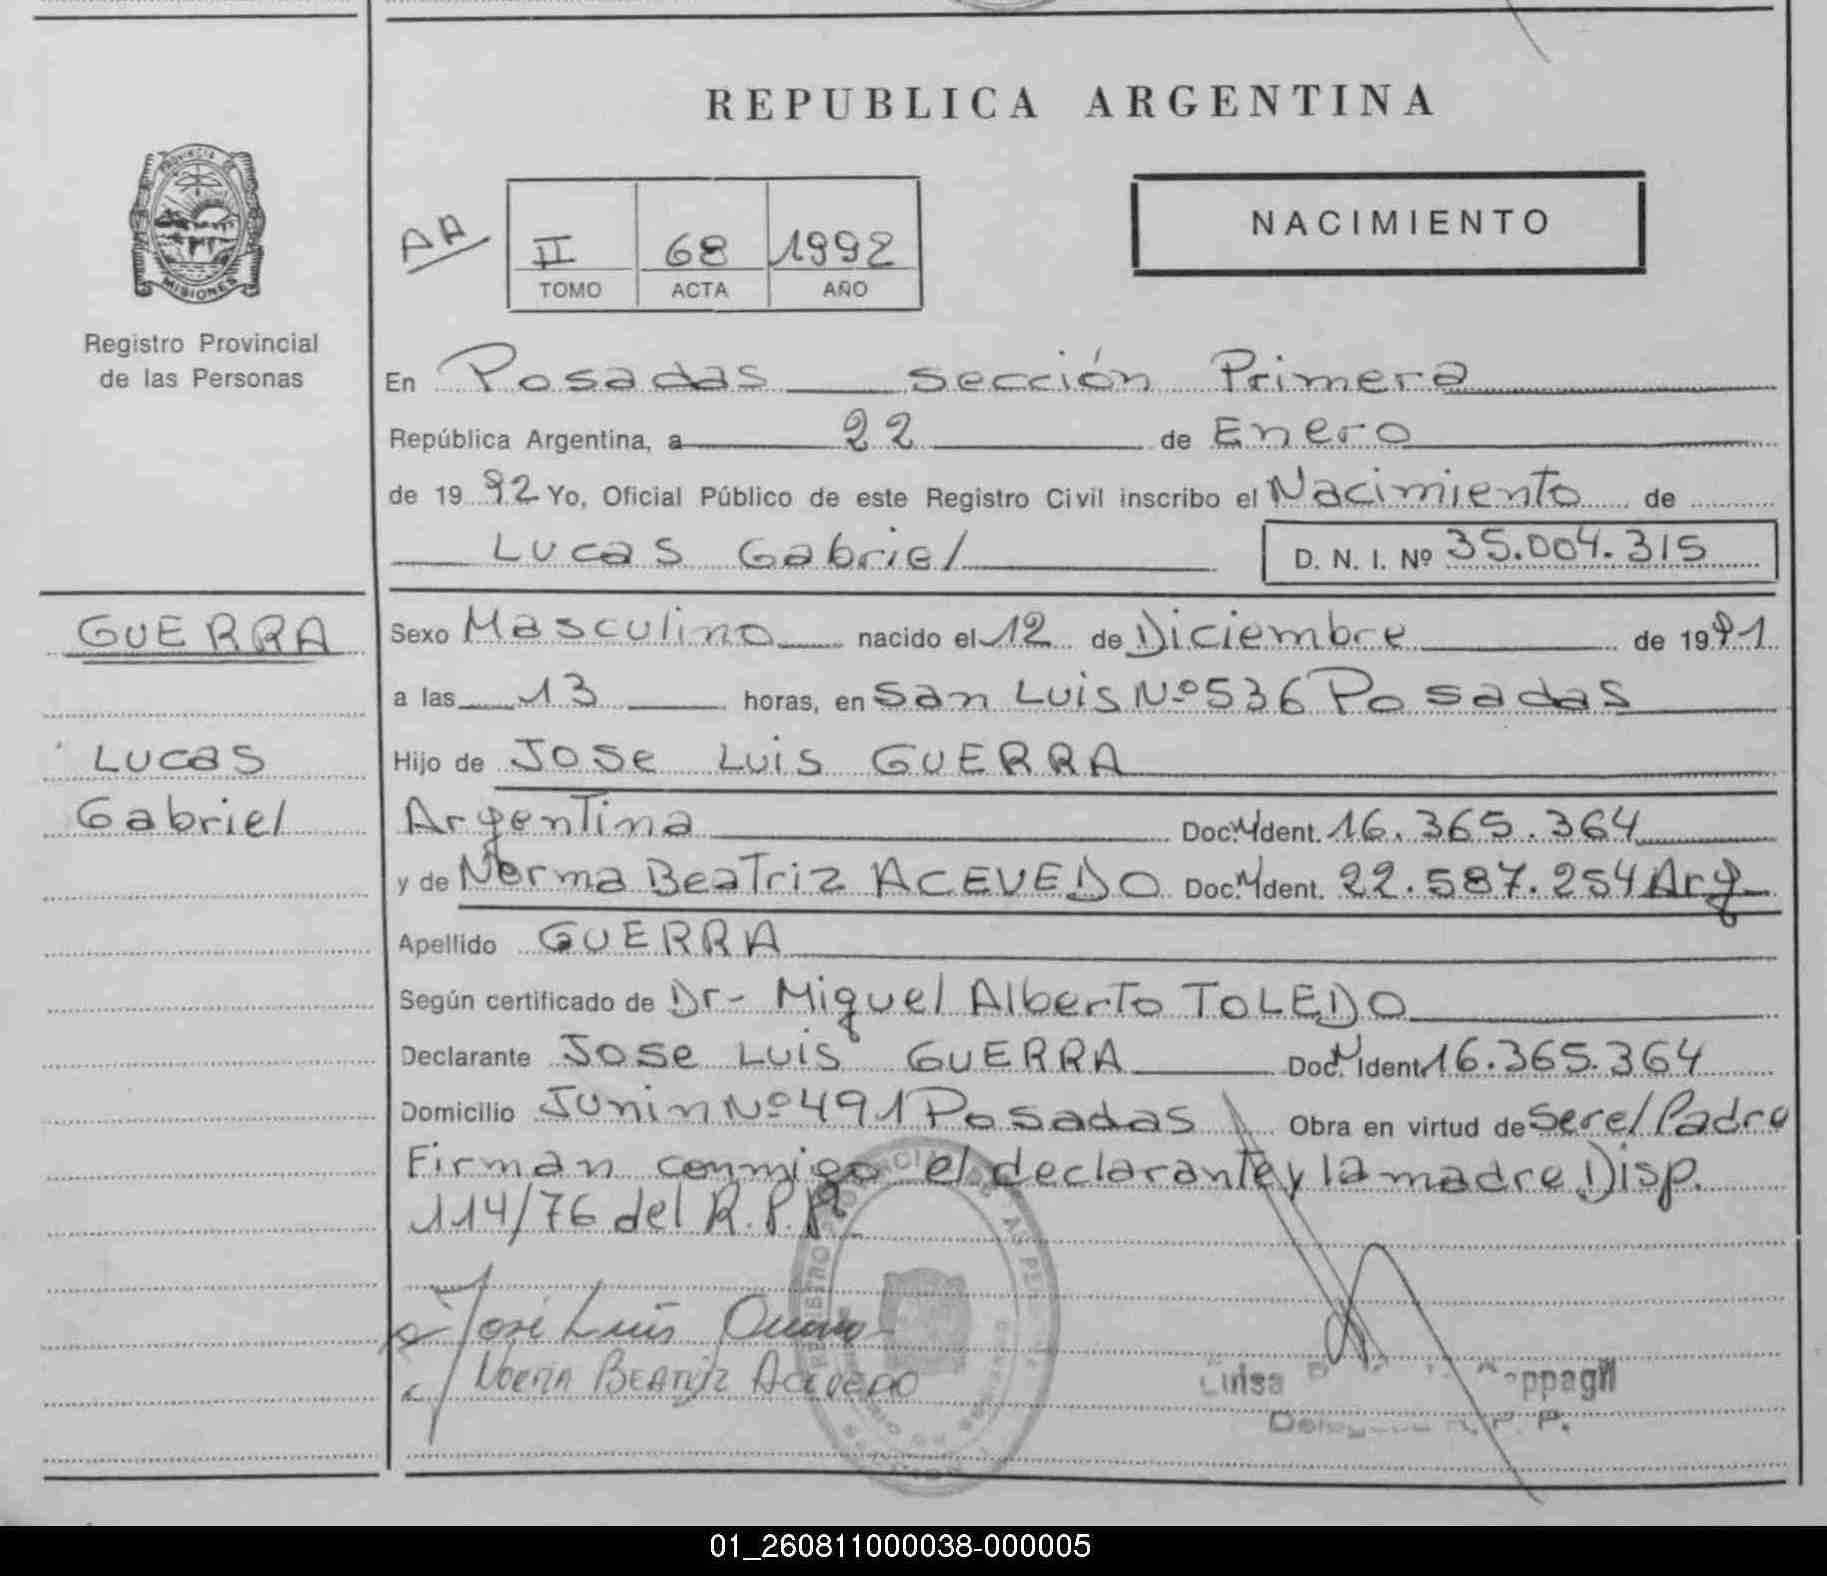 REPUBLICA ARGENTINA
PROVINCIA DE
MISIONES
Registro Provincial
de las Personas
AA
II 68 1992
TOMO ACTA AÑO
NACIMIENTO
En Posadas sección Primera
República Argentina, a 22 de Enero
de 1992 Yo, Oficial Público de este Registro Civil inscribo el Nacimiento de
Lucas Gabriel D. N. I. Nº 35.004.315
GUERRA
Lucas
Gabriel
Sexo Masculino nacido el 12 de Diciembre de 1991
a las 13 horas, en San Luis Nº 536 Posadas
Hijo de Jose Luis GUERRA
Argentina Doc. Ident. 16.365.364
y de Norma Beatriz ACEVEDO Doc. Ident. 22.587.254 Arg
Apellido GUERRA
Según certificado de Dr- Miguel Alberto TOLEDO
Declarante Jose Luis GUERRA Doc. Ident. 16.365.364
Domicilio Junin Nº 491 Posadas Obra en virtud de ser el Padre
Firman conmigo el declarante y la madre Disp.
114/76 del R.P.P.
José Luis Guerra
Norma Beatriz Acevedo
Luisa
R. P. P.
01_260811000038-000005